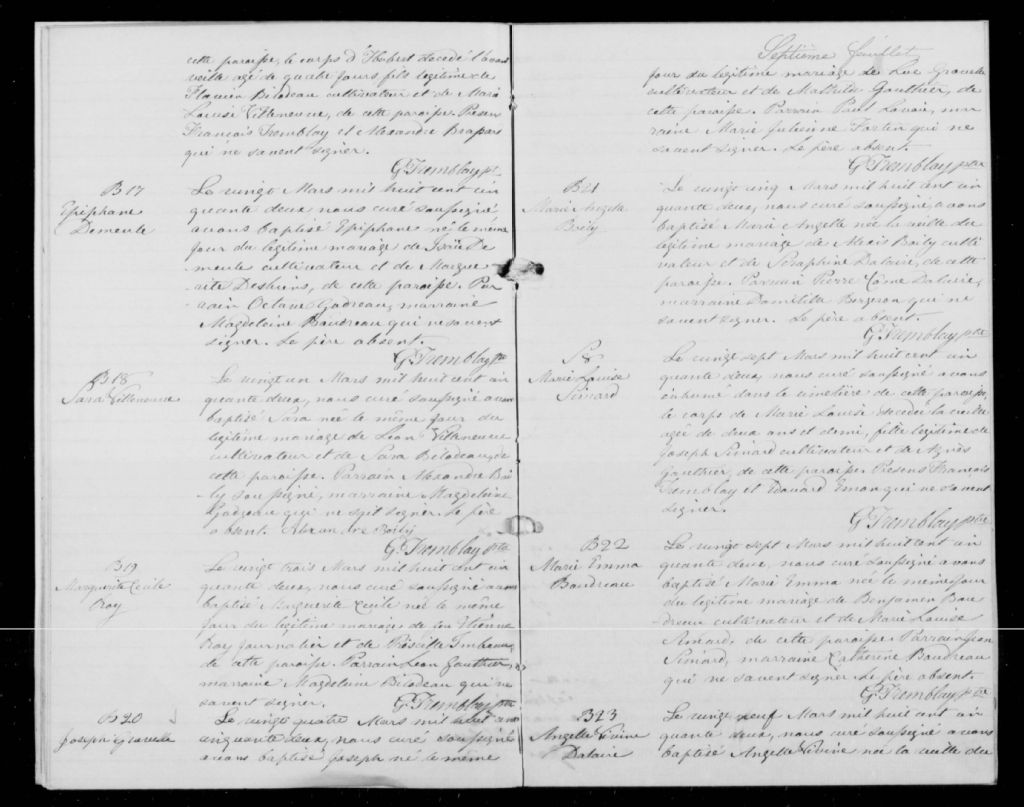 cette paroisse, le corps d'Hubert decedé l'avant
veille agé de quatre jours fils legitime de
Flavien Bilodeau cultivateur et de Marie
Louise Villeneuve, de cette paroisse. Presens
François Tremblay et Alexandre
qui ne savent signer.
G. Tremblay ptre
B17
Epiphane
Demeule
Le vingt Mars mil huit cent cin
quante deux, nous curé soussigné
avons baptisé Epiphane né le meme
jour du legitime mariage de De
meule cultivateur et de Margue
rite Desbiens, de cette paroisse. Par
rain Octave Gadreau, marraine
Magdeleine Baudreau qui ne savent
signer. Le père absent.
G. Tremblay ptre
B18
Sara Villeneuve
Le vingt un Mars mil huit cent cin
quante deux, nous curé soussigné avons
baptisé Sara née le même jour du
legitime mariage de Léon Villeneuve
cultivateur et de Sara Bilodeau, de
cette paroisse. Parrain Alexandre Boi
ly soussigné, marraine Magdeleine
Gadreau qui ne sait signer. Le père
absent. Alexandre Boily
G. Tremblay ptre
B19
Marguerite Cecile
Roy
Le vingt trois Mars mil huit cent cin
quante deux, nous curé soussigné avons
baptisé Marguerite Cecile née le même
jour du legitime mariage de Etienne
Roy journalier et de Priscille Imbeau,
de cette paroisse. Parrain Léon Gauthier,
marraine Magdeleine Bilodeau qui ne
savent signer. G. Tremblay ptre
B20
Joseph Gravelle
Le vingt quatre Mars mil huit cent
cinquante deux, nous curé soussigné
avons baptisé Joseph né le même
Septième feuillet
jour du legitime mariage de Luc Gravelle
cultivateur et de Mathilde Gauthier, de
cette paroisse. Parrain Paul Lavoie, mar
raine Marie Julienne Fortin qui ne
savent signer. Le père absent.
G. Tremblay ptre
B21
Marie Angelle
Boily
Le vingt cinq Mars mil huit cent cin
quante deux, nous curé soussigné avons
baptisé Marie Angelle née la veille du
legitime mariage de Alexis Boily culti
vateur et de Seraphine Dalaire, de cette
paroisse. Parrain Pierre Come Dalaire,
marraine Domitilde Bergeron qui ne
savent signer. Le père absent.
G. Tremblay ptre
S8
Marie Louise
Simard
Le vingt sept Mars mil huit cent cin
quante deux, nous curé soussigné avons
inhumé dans le cimetière de cette paroisse,
le corps de Marie Louise decedée la veille
agée de deux ans et demi, fille legitime de
Joseph Simard cultivateur et de Agnès
Gauthier, de cette paroisse. Presens François
Tremblay et Edouard Emon qui ne savent
signer.
G. Tremblay ptre
B22
Marie Emma
Baudreau
Le vingt sept Mars mil huit cent cin
quante deux, nous curé soussigné avons
baptisé Marie Emma née le meme jour
du legitime mariage de Benjamen Bau
dreau cultivateur et de Marie Louise
Simard, de cette paroisse. Parrain Jean
Simard, marraine Catherine Baudreau
qui ne savent signer. Le père absent.
G. Tremblay ptre
B23
Angelle
Dalaire
Le vingt neuf Mars mil huit cent cin
quante deux, nous curé soussigné avons
baptisé Angelle née la veille du